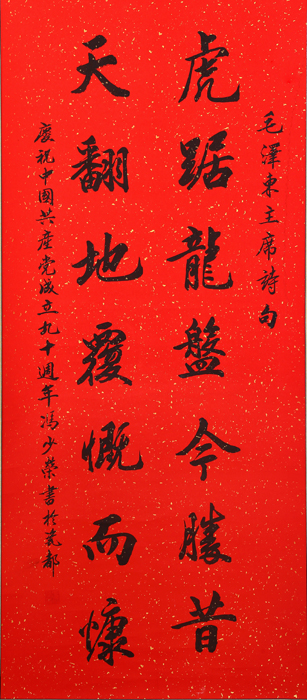 毛澤東主席詩句
虎踞龍盤今勝昔
天翻地覆慨而慷
慶祝中國共產党成立九十週年馮少榮書於瓷都